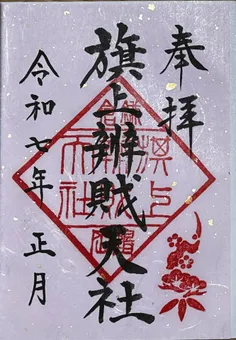 奉拝
旗上辨財天社
令和七年 正月
旗上
辨財
天社